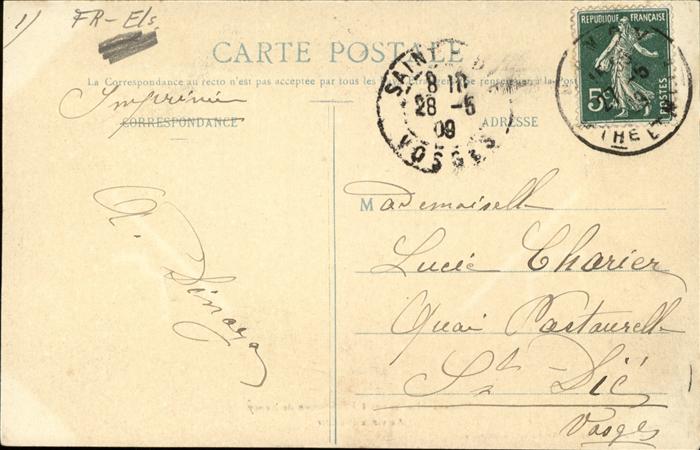 1) FR-Els
CARTE POSTALE
La Correspondance au recto n'est pas acceptée par tous les
se renseigner à la Poste
Imprimée
CORRESPONDANCE
ADRESSE
SAINT
8 10
28 -6
09
VOSGES
REPUBLIQUE FRANÇAISE
5
POSTES
Mademoiselle
Lucie Charier
Quai Pastourelle
St Dié
Vosges
A.